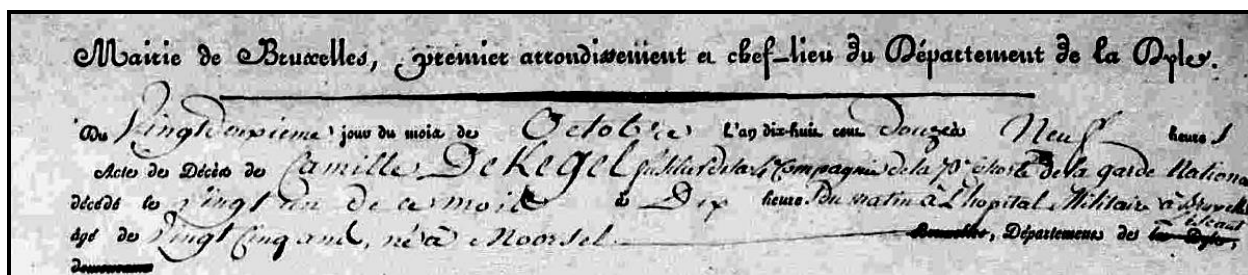 Mairie de Bruxelles, premier arrondissement et chef-lieu du Département de la Dyle.
Du Vingtdeuxieme jour du mois de Octobre l'an dix-huit cent Douze à Neuf heures
Acte de Décès de Camille DeKegel fusilier de la Compagnie de la de la garde Nationa
décédé le vingt un de ce mois à Dix heures Du matin à L'hopital Militaire à Bruxelles
âgé de Vingt Cinq ans, né à Moorsel Bruxelles, Département de l'Escaut la Dyle,
demeurant